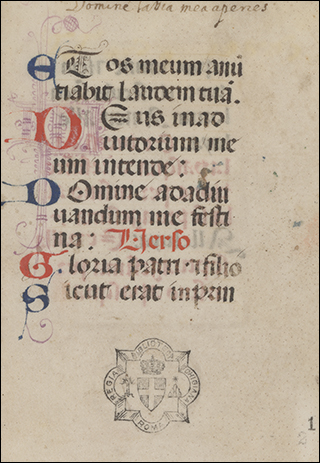 Domine labia mea aperies
ET os meum anū
tiabit laudem tuā.
DEus in ad
iutorium me
um intende:
Domine ad adiu
uandum me festi
na: Verso
Gloria patri ⁊ filio
Sicut erat in prin
REGIA
ROMA
1
2